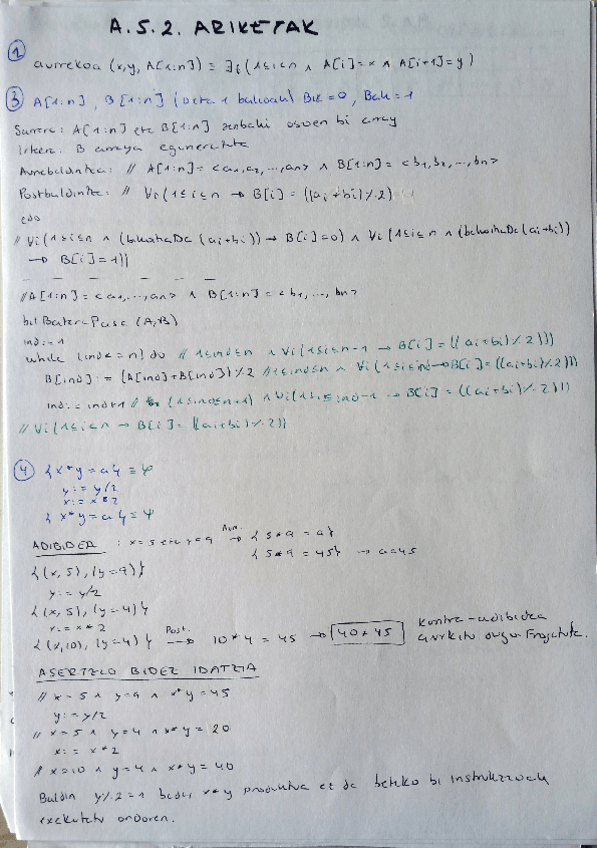 A.5.2. ARIKETAK
1 aurrekoa (x,y, A[1:n]) ≡ ∃i(1≤i<n ∧ A[i]=x ∧ A[i+1]=y)
3 A[1:n], B[1:n] (0 eta 1 balioak) Bik=0, Bak=1
Sarrera: A[1:n] eta B[1:n] zenbaki osoen bi array
Irteera: B arraya eguneratuta
Aurrebaldintza: // A[1:n]=<a1,a2,...,an> ∧ B[1:n]=<b1,b2,...,bn>
Postbaldintza: // ∀i(1≤i≤n → B[i]=((ai+bi)%2)
edo
// ∀i(1≤i≤n ∧ (bikoitiaDa(ai+bi)) → B[i]=0) ∧ ∀i(1≤i≤n ∧ (bakoitiaDa(ai+bi))
→ B[i]=1))
//A[1:n]=<a1,...,an> ∧ B[1:n]=<b1,...,bn>
bit (A,B)
ind:=1
while (ind<=n) do // 1≤ind≤n ∧ ∀i(1≤i≤ind-1 → B[i]=((ai+bi)%2)))
B[ind]:=(A[ind]+B[ind])%2 //1≤ind≤n ∧ ∀i(1≤i≤ind→B[i]=((ai+bi)%2)))
ind:=ind+1 // (1≤ind≤n+1) ∧ ∀i(1≤i≤ind-1 → B[i]=((ai+bi)%2)))
// ∀i(1≤i≤n → B[i]=((ai+bi)%2))
4 {x*y=a} ≡ φ
y:=y/2
x:=x*2
{x*y=a} ≡ ψ
ADIBIDEA: x=5 eta y=9 Aurr. → {5*9=a}
{5*9=45} → a=45
{(x,5),(y=9)}
y:=y/2
{(x,5),(y=4)}
x:=x*2
{(x,10),(y=4)} Post. → 10*4=45 → 40≠45 Kontra-adibidea
aurkitu dugu frogatuta.
ASERTZIO BIDEZ IDATZIA
// x=5 ∧ y=9 ∧ x*y=45
y:=y/2
// x=5 ∧ y=4 ∧ x*y=20
x:=x*2
// x=10 ∧ y=4 ∧ x*y=40
Baldin y%2=1 bada x*y produktua ez da beteko bi instrukzioak
exekutatu ondoren.